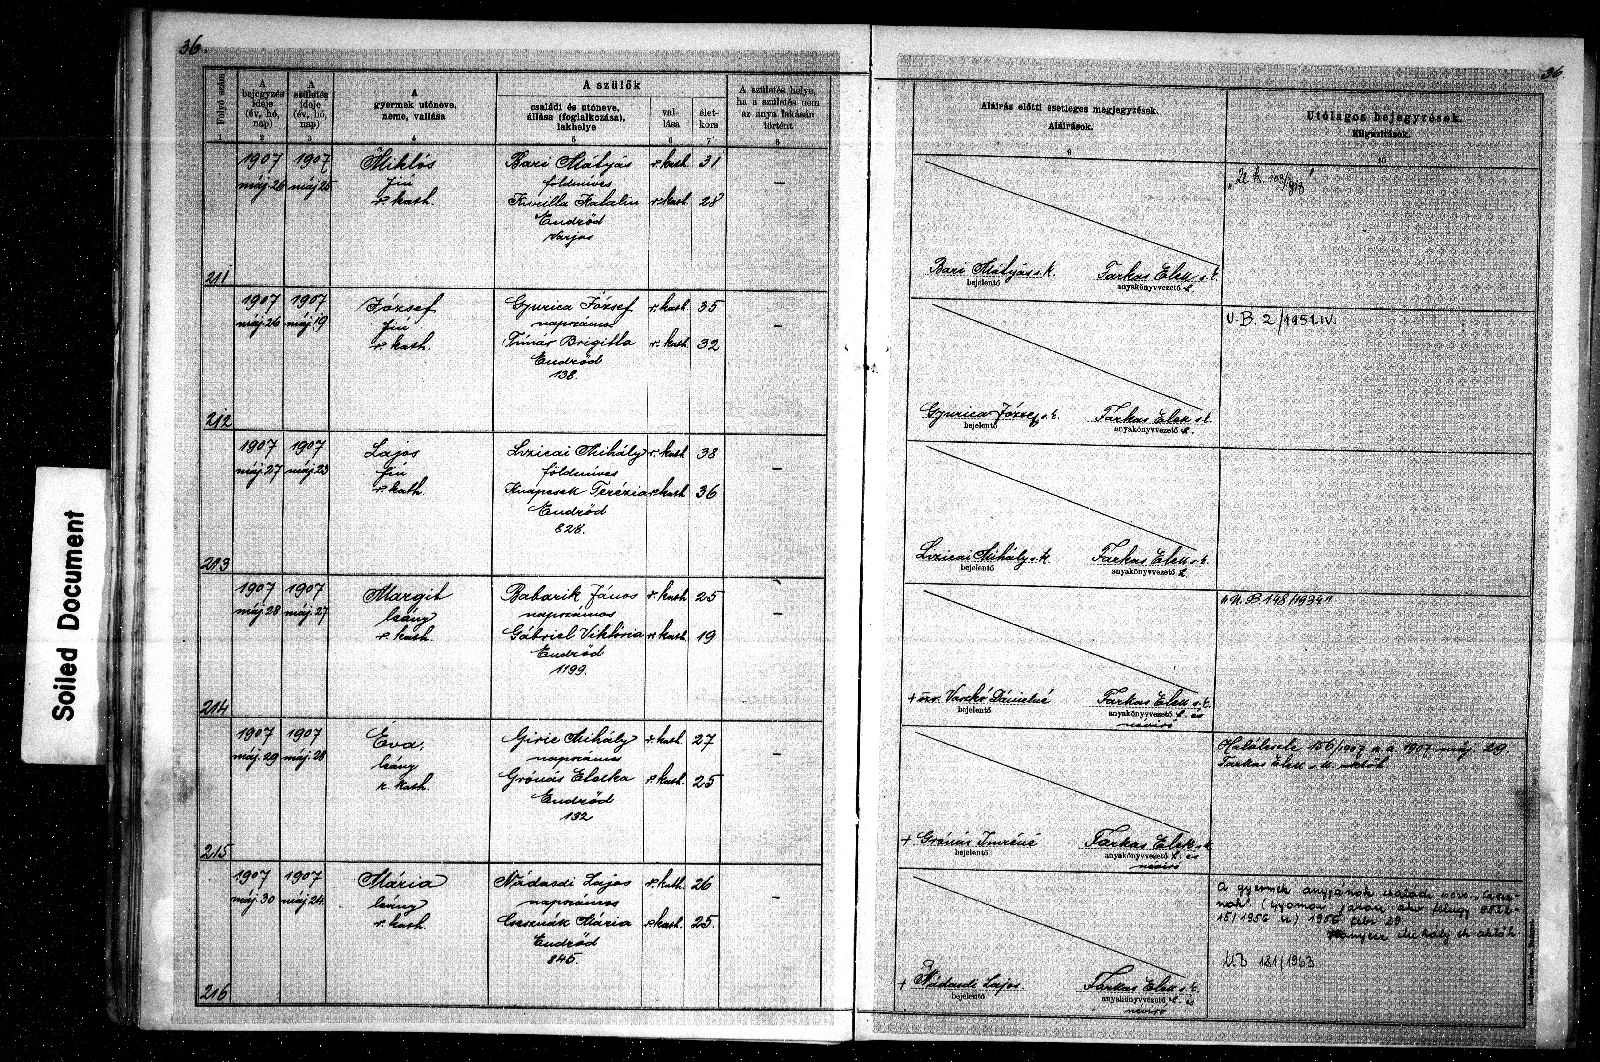 36
36
Soiled Document
Folyó szám
A bejegyzés ideje (év, hó, nap)
A születés ideje (év, hó, nap)
A gyermek utóneve, neme, vallása
A szülők
családi és utóneve, állása (foglalkozása), lakhelye
vallása
életkora
A születés helye, ha a születés nem az anya lakásán történt
Aláírás előtti esetleges megjegyzések.
Aláírások.
Utólagos bejegyzések.
Kiigazítások.
1 2 3 4 5 6 7 8 9 10
211
1907 máj. 26
1907 máj. 25
Miklós
fiú
r. kath.
Bari Mátyás r. kath. 31
földmíves
Katalin r. kath. 28
Endrőd
Varjas
—
Bari Mátyás s. k.
bejelentő
Farkas Elek s. k.
anyakönyvvezető h.
212
1907 máj. 26
1907 máj. 19
József
fiú
r. kath.
Gyurica József r. kath. 35
napszámos
Tímár Brigitta r. kath. 32
Endrőd
138.
—
U.B. 2/1951.IV.
Gyurica József s. k.
bejelentő
Farkas Elek s. k.
anyakönyvvezető h.
213
1907 máj. 27
1907 máj. 23
Lajos
fiú
r. kath.
Lizicai Mihály r. kath. 38
földmíves
Knapcsek Terézia r. kath. 36
Endrőd
828.
—
Lizicai Mihály s. k.
bejelentő
Farkas Elek s. k.
anyakönyvvezető h.
214
1907 máj. 28
1907 máj. 27
Margit
leány
r. kath.
Babarik János r. kath. 25
napszámos
Gábriel Viktória r. kath. 19
Endrőd
1199.
—
U.B. 148/1934
+ özv. Vaszkó Dánielné
bejelentő
Farkas Elek s. k.
anyakönyvvezető h. és
névíró
215
1907 máj. 29
1907 máj. 28
Éva.
leány
r. kath.
Giric Mihály r. kath. 27
napszámos
Grónás Etelka r. kath. 25
Endrőd
132
—
Haláleset 156/1907 a. a 1907 máj. 29.
Farkas Elek s. k.
+ Grónás Imréné
bejelentő
Farkas Elek s. k.
anyakönyvvezető h. és
névíró
216
1907 máj. 30
1907 máj. 24
Mária
leány
r. kath.
Nádasdi Lajos r. kath. 26
napszámos
Csesznák Mária r. kath. 25.
Endrőd
845.
A gyermek anyjának családi neve
1956
Mihály
U.B 181/1963
+ Nádasdi Lajos.
bejelentő
Farkas Elek s. k.
anyakönyvvezető h. és
névíró